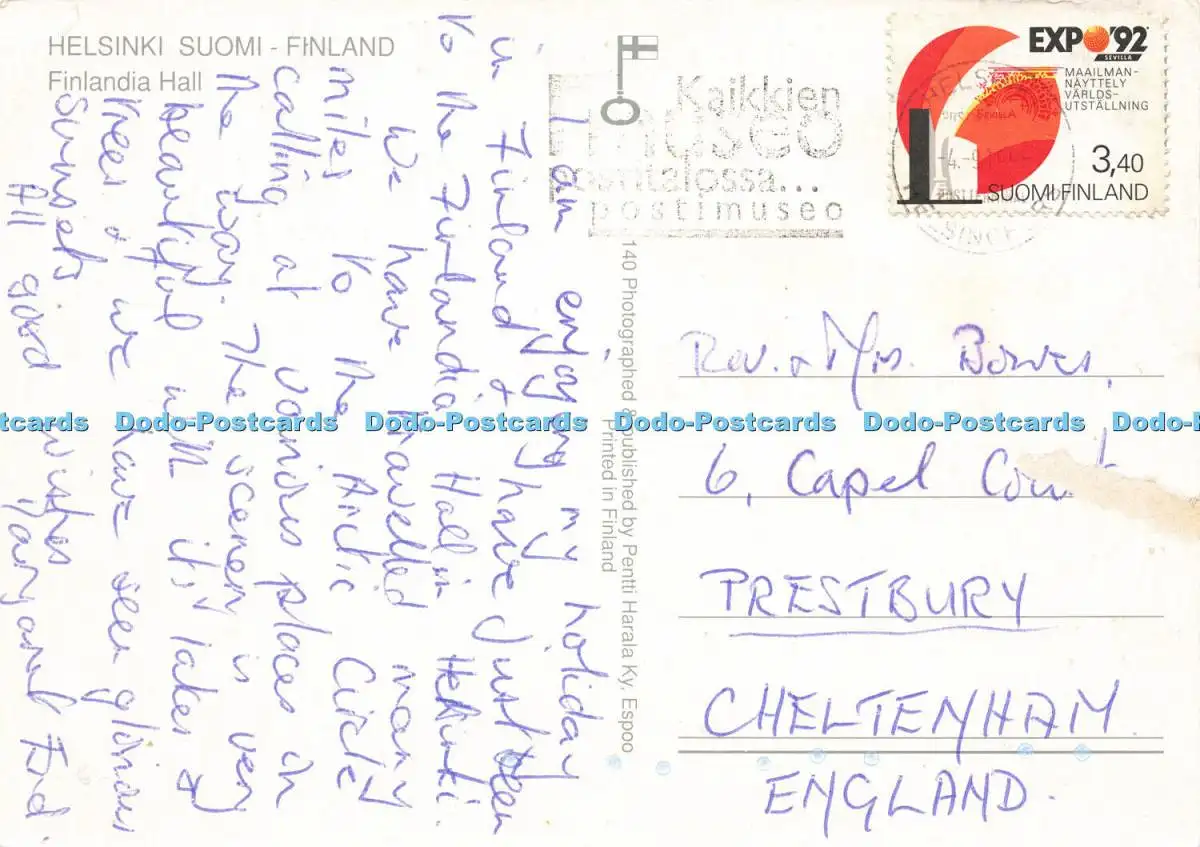 HELSINKI SUOMI - FINLAND
Finlandia Hall
I am enjoying my holiday
in Finland & have just been
to the Finlandia Hall in Helsinki.
We have travelled many
miles to the Arctic Circle
calling at various places on
the way. The scenery is very
beautiful with its lakes &
trees & we have seen glorious
sunsets.
All good wishes
Margaret Ford.
140 Photographed & published by Pentti Harala Ky, Espoo
Printed in Finland
Kaikkien
museo
postitalossa...
postimuseo
EXPO '92
SEVILLA
MAAILMAN-
NÄYTTELY
VÄRLDS-
UTSTÄLLNING
3,40
SUOMI FINLAND
Rev. & Mrs. Bowes,
6, Capel Court
PRESTBURY
CHELTENHAM
ENGLAND.
Dodo-Postcards Dodo-Postcards Dodo-Postcards Dodo-Postcards Dodo-Postcards